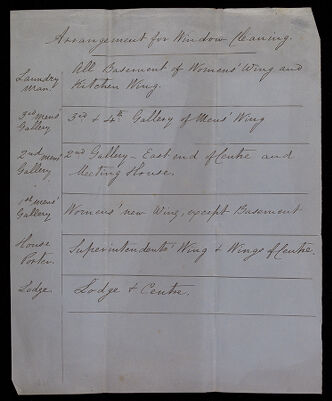 Arrangement for Window Cleaning.
Laundry
Man
All Basement of Womens' Wing and
Kitchen Wing.
3rd mens'
Gallery
3rd & 4th Gallery of Mens' Wing
2nd mens'
Gallery
2nd Gallery - East end of Centre and
Meeting House.
1st mens'
Gallery
Womens' new Wing, except Basement
House
Porter.
Superintendents' Wing & Wings of Centre.
Lodge.
Lodge & Centre.